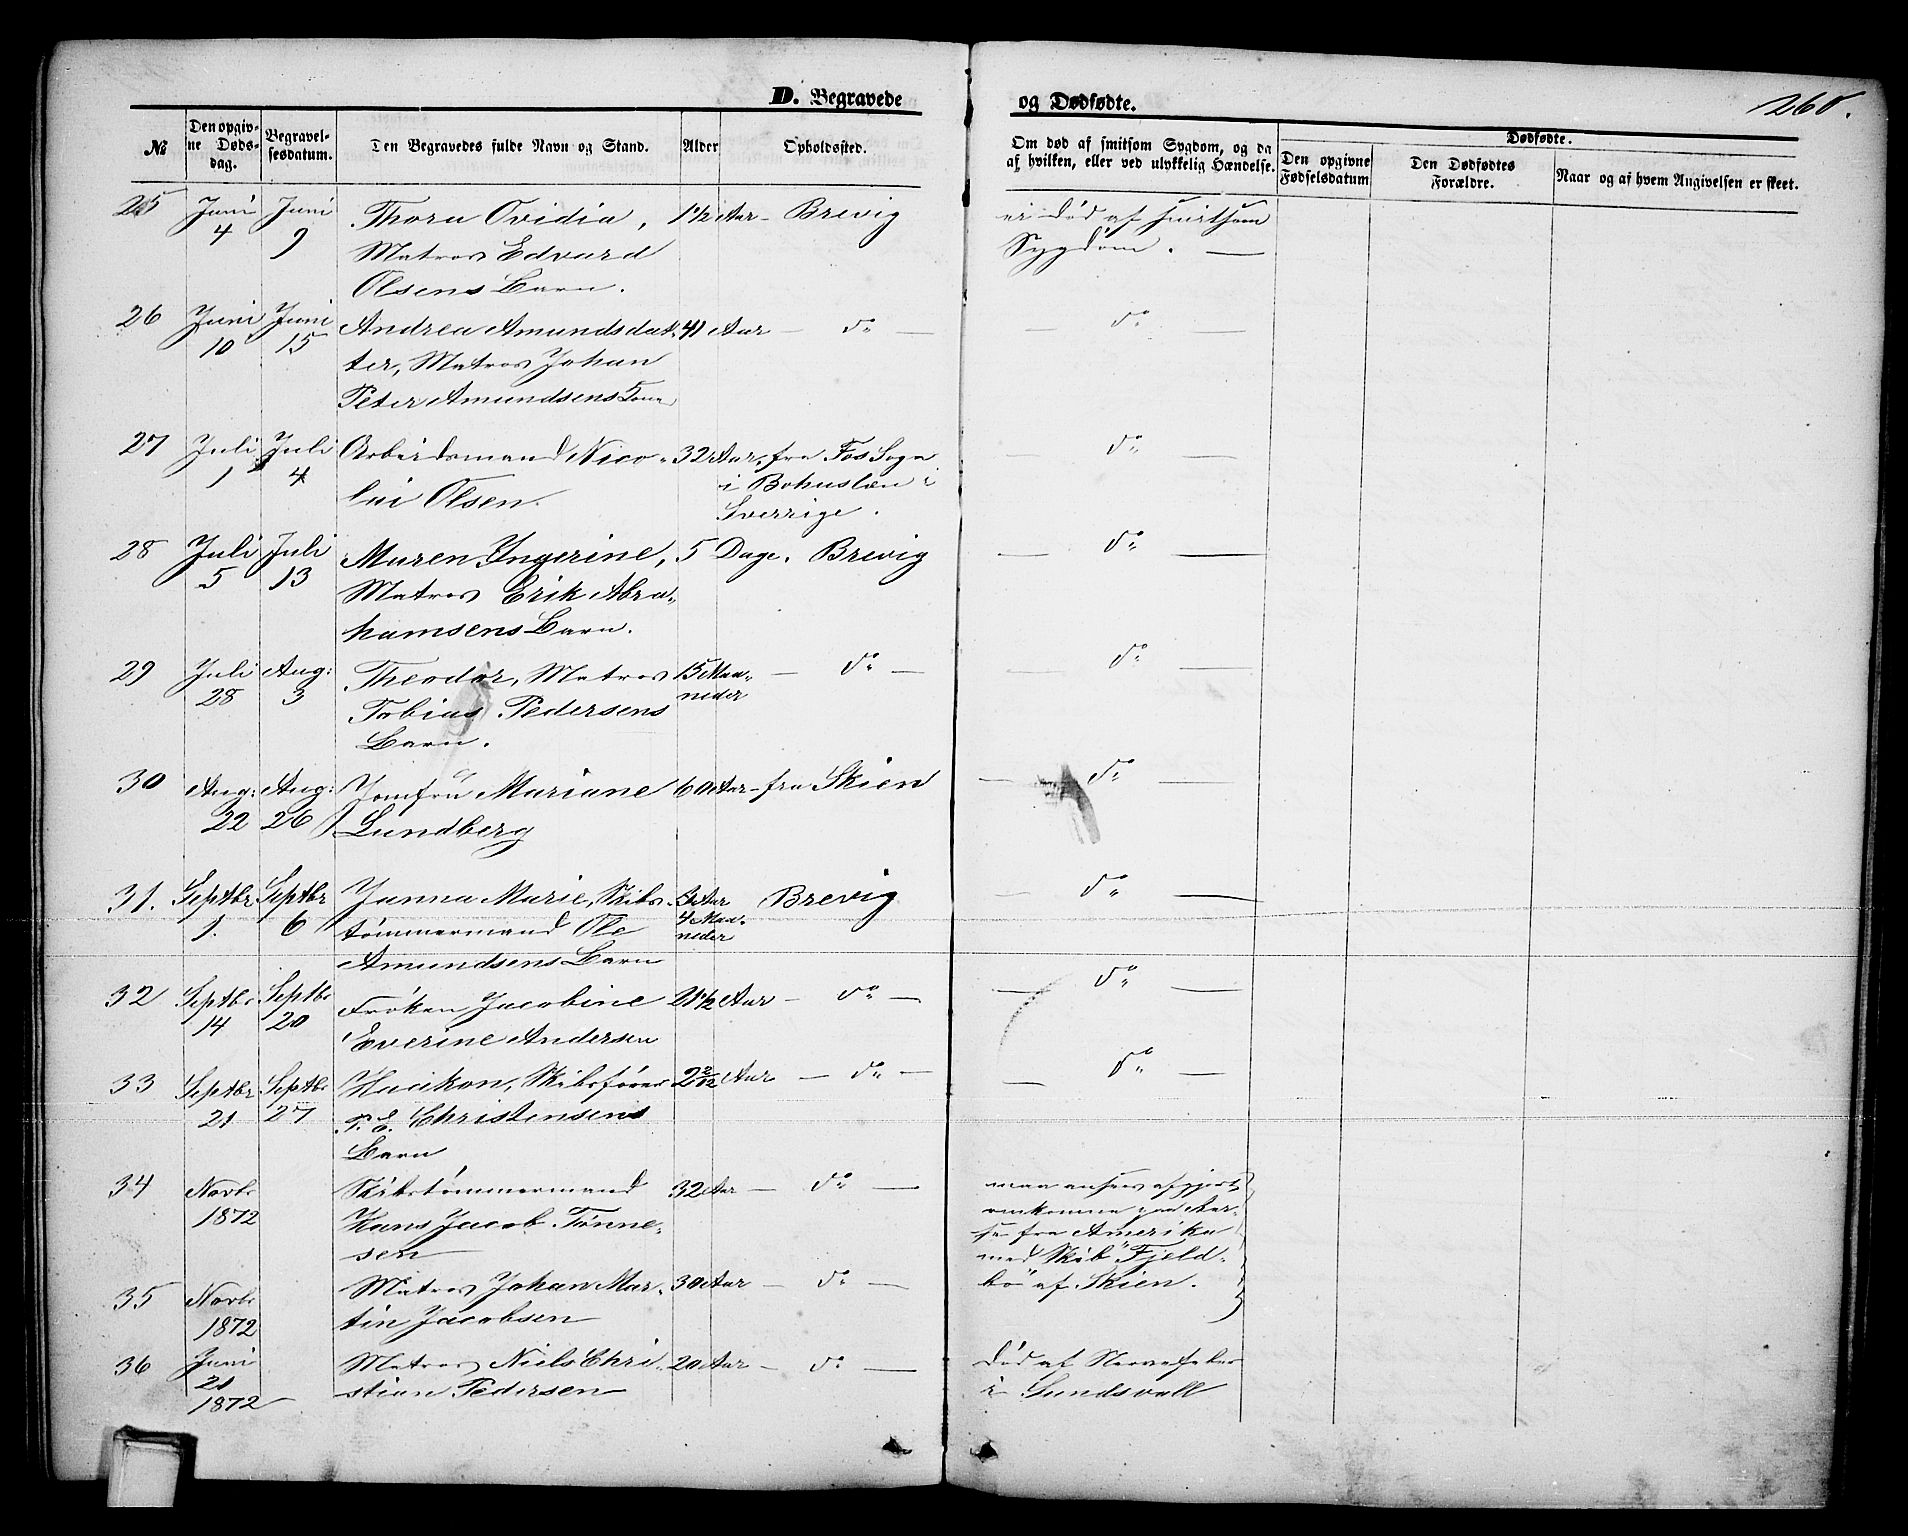 D. Begravede
og Dødfødte.
260.
№
Den opgivne Dødsdag.
Begravelsesdatum.
Den Begravedes fulde Navn og Stand.
Alder
Opholdssted.
Om død af smitsom Sygdom, og da
af hvilken, eller ved ulykkelig Hændelse.
Dødfødte.
Den opgivne
Fødselsdatum
Den Dødfødtes
Forældre.
Naar og af hvem Angivelsen er skeet.
25 Juni 4 Juni 9 Thora Ovidia, 1½ Aar – Brevig ei død af smitsom
Matros Edvard Sygdom. —
Olsens Barn.
26 Juni 10 Juni 15 Andrea Amundsdat- 41 Aar – do – – do –
ter, Matros Johan
Peter Amundsens Kone
27 Juli 1 Juli 4 Arbeidsmand Nico- 32 Aar, fra Fos Sogn do –
lai Olsen. i Bohuslæn i
Sverrige.
28 Juli 5 Juli 13 Maren Ingerine, 5 Dage. Brevig – do –
Matros Erik Abra-
hamsens Barn.
29 Juli 28 Aug: 3 Theodor, Matros 15 Maa- – do – – do –
Tobias Pedersens neder
Barn.
30 Aug: 22 Aug: 26 Jomfru Mariane 60 Aar – fra Skien – do –
Lundberg
31. Septbr 1. Septbr 6 Janna Marie, Skibs- Aar Brevig – do –
tømmermand Ole 4 Maa-
Amundsens Barn neder
32 Septbr 14 Septbr 20 Frøken Jacobine 21½ Aar – do – – do –
Everine Andersen
33 Septbr 21 Septbr 27 Haakon, Skibsfører 2 2/12 Aar – do – – do –
P. E. Christensens
Barn
34 Novbr 1872 Skibstømmermand 32 Aar – do – maa ansees afgjort
Hans Jacob Tønne- omkomne paa Rei-
sen se fra Amerika
med Skib "Fjeld-
bo" af Skien.
35 Novbr 1872 Matros Johan Mar- 30 Aar – do –
tin Jacobsen
36 Juni 21 1872 Matros Niels Chri- 20 Aar – do – Død af Nervefeber
stian Pedersen i Sundsvall